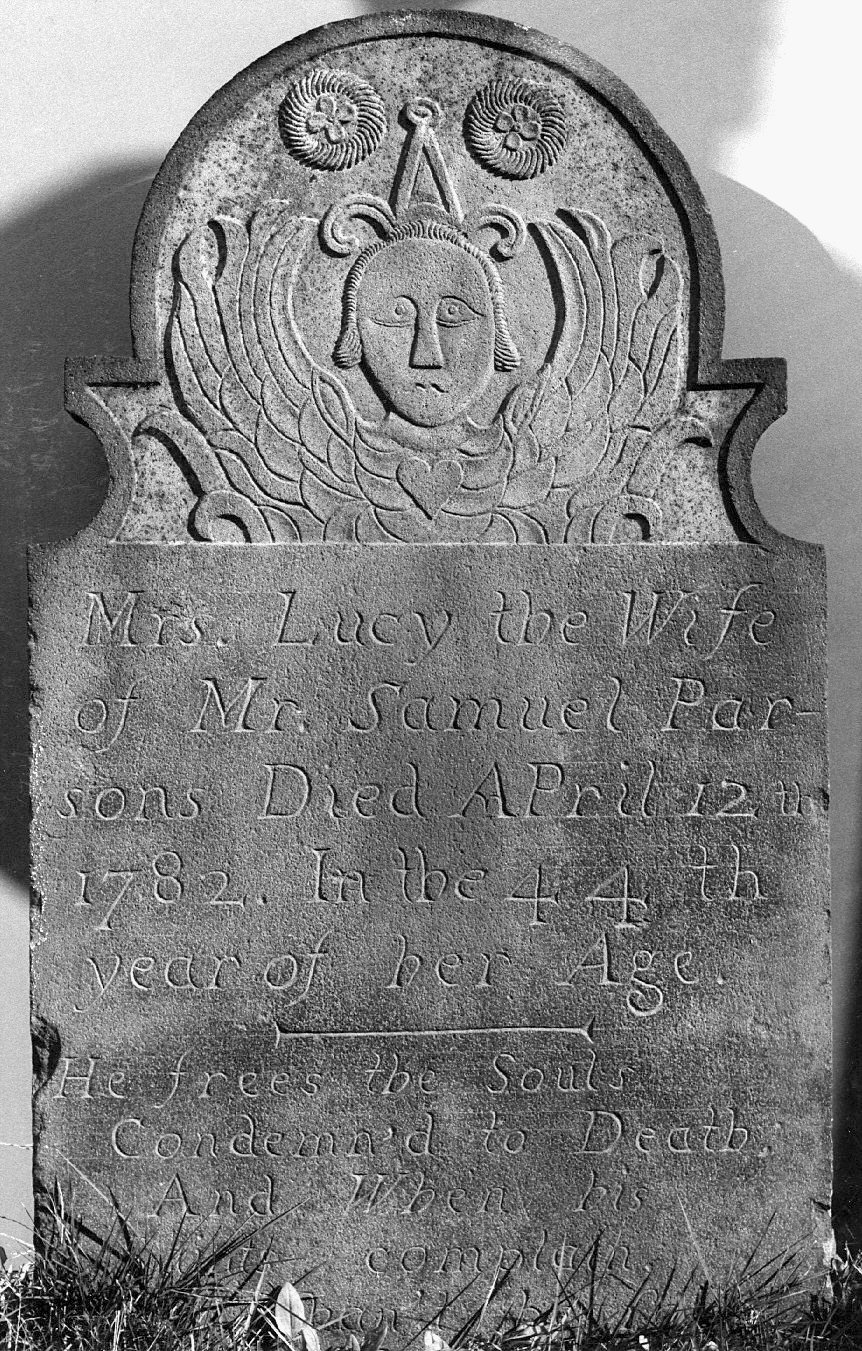 Mrs. Lucy the Wife
of Mr. Samuel Par-
sons Died APril 12th
1782. In the 44th
year of her Age.
He frees the Souls
Condemn'd to Death,
And When his
complain,